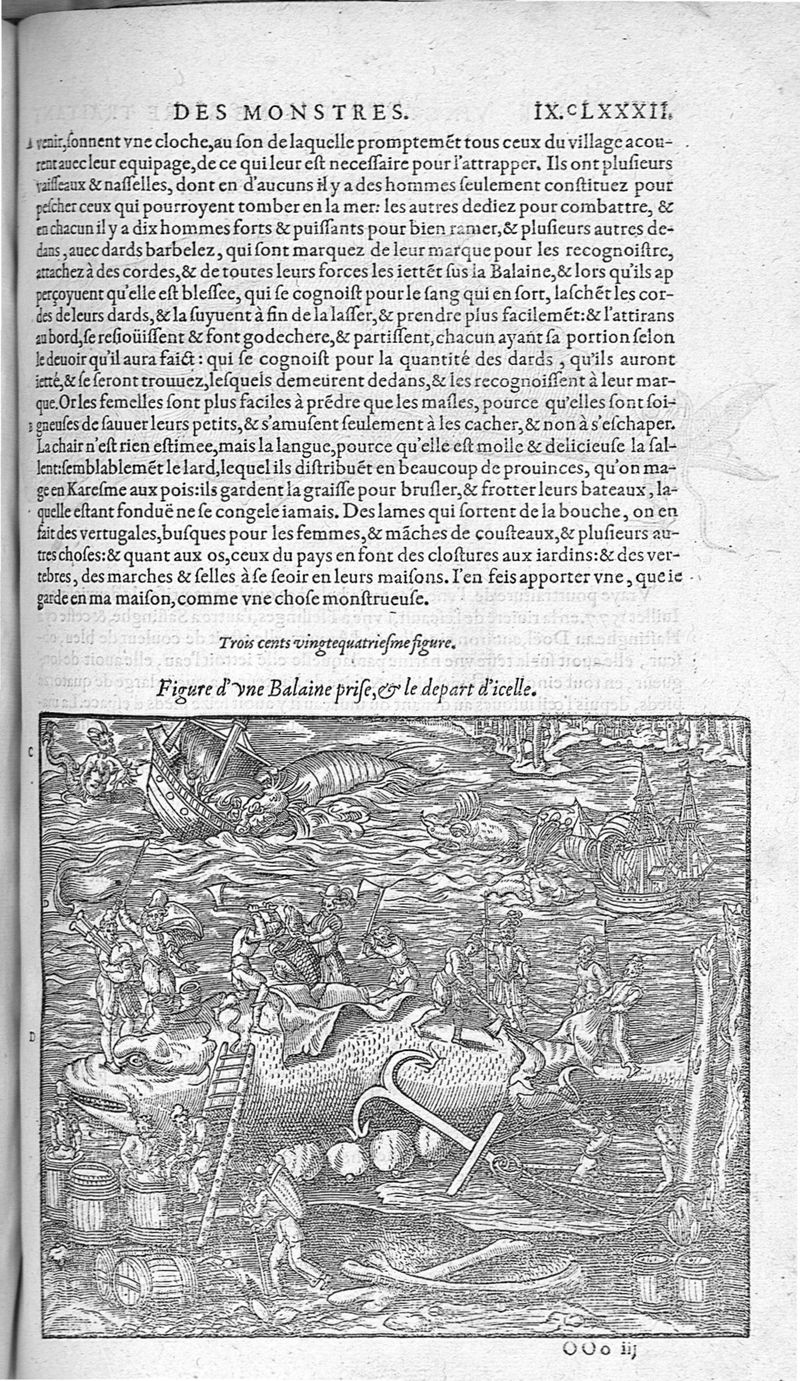 DES MONSTRES. IX.CLXXXII.
A venir, ſonnent vne cloche, au ſon de laquelle promptemẽt tous ceux du village acou-
rent auec leur equipage, de ce qui leur eſt neceſſaire pour l'attrapper. Ils ont pluſieurs
vaiſſeaux & naſſelles, dont en d'aucuns il y a des hommes ſeulement conſtituez pour
peſcher ceux qui pourroyent tomber en la mer: les autres dediez pour combattre, &
en chacun il y a dix hommes forts & puiſſants pour bien ramer, & pluſieurs autres de-
dans, auec dards barbelez, qui ſont marquez de leur marque pour les recognoiſtre,
attachez à des cordes, & de toutes leurs forces les iettẽt ſus la Balaine, & lors qu'ils ap
perçoyuent qu'elle eſt bleſſee, qui ſe cognoiſt pour le ſang qui en ſort, laſchẽt les cor-
des de leurs dards, & la ſuyuent à fin de la laſſer, & prendre plus facilemẽt: & l'attirans
au bord, ſe reſioüiſſent & font godechere, & partiſſent, chacun ayant ſa portion ſelon
le deuoir qu'il aura faict: qui ſe cognoiſt pour la quantité des dards, qu'ils auront
ietté, & ſe ſeront trouuez, leſquels demeurent dedans, & les recognoiſſent à leur mar-
que. Or les femelles ſont plus faciles à prẽdre que les maſles, pource qu'elles ſont ſoi-
B gneuſes de ſauuer leurs petits, & s'amuſent ſeulement à les cacher, & non à s'eſchaper.
La chair n'eſt rien eſtimee, mais la langue, pource qu'elle eſt molle & delicieuſe la ſal-
lent: ſemblablemẽt le lard, lequel ils diſtribuẽt en beaucoup de prouinces, qu'on mã-
ge en Kareſme aux pois: ils gardent la graiſſe pour bruſler, & frotter leurs bateaux, la-
quelle eſtant fonduë ne ſe congele iamais. Des lames qui ſortent de la bouche, on en
fait des vertugales, buſques pour les femmes, & mãches de couſteaux, & pluſieurs au-
tres choſes: & quant aux os, ceux du pays en font des cloſtures aux iardins: & des ver-
tebres, des marches & ſelles à ſe ſeoir en leurs maiſons. I'en feis apporter vne, que ie
garde en ma maiſon, comme vne choſe monſtrueuſe.
Trois cents vingtequatrieſme figure.
Figure d'vne Balaine priſe, & le depart d'icelle.
C
D
OOo iij